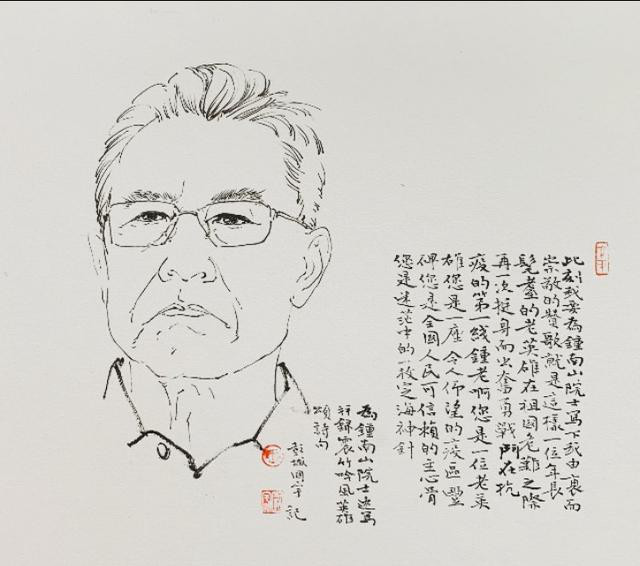 此刻我要為鍾南山院士寫下我由衷而
崇敬的贊歌就是這樣一位年長
髦耋的老英雄在祖國危難之際
再一次挺身而出奮勇戰鬥在抗
疫的第一線鍾老啊您是一位老英
雄您是一座令人仰望的疫區豐
碑您是全國人民可信賴的主心骨
您是迷茫中的一枚定海神針
為鍾南山院士速寫
并錄震竹吟風英雄
頌詩句
彭城 記